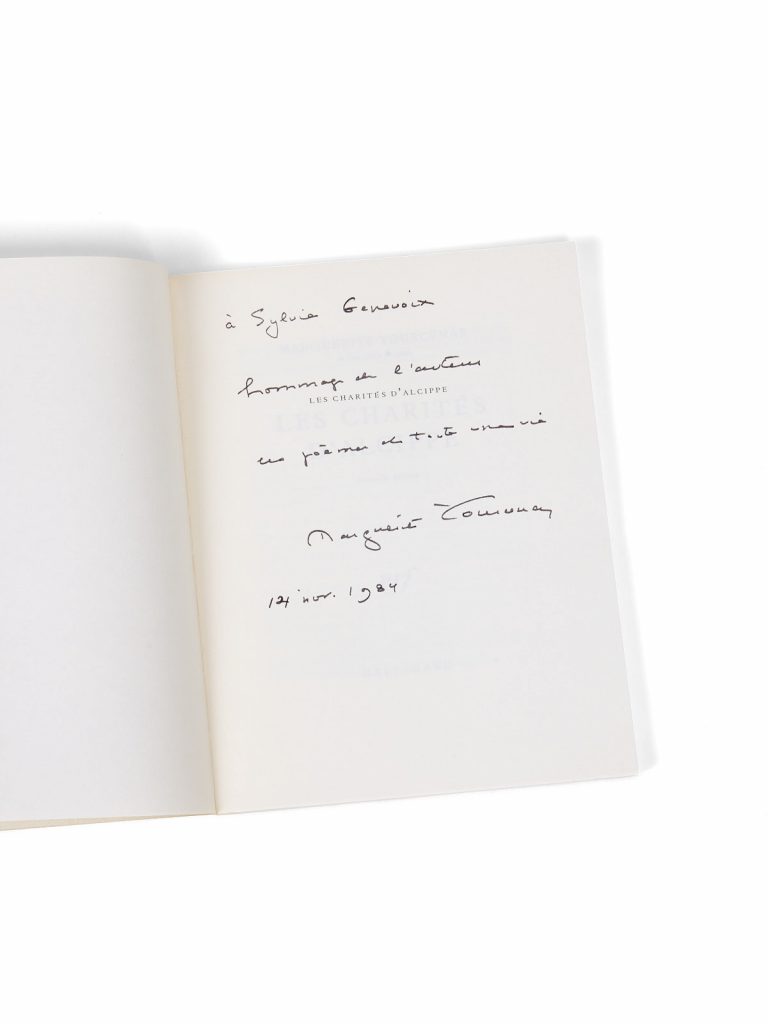 à Sylvie Genevoix
hommage de l'auteur
LES CHARITÉS D'ALCIPPE
MARGUERITE YOURCENAR
LES CHARITÉS
D'ALCIPPE
ces poèmes de toute une vie
Marguerite Yourcenar
14 nov. 1984
GALLIMARD